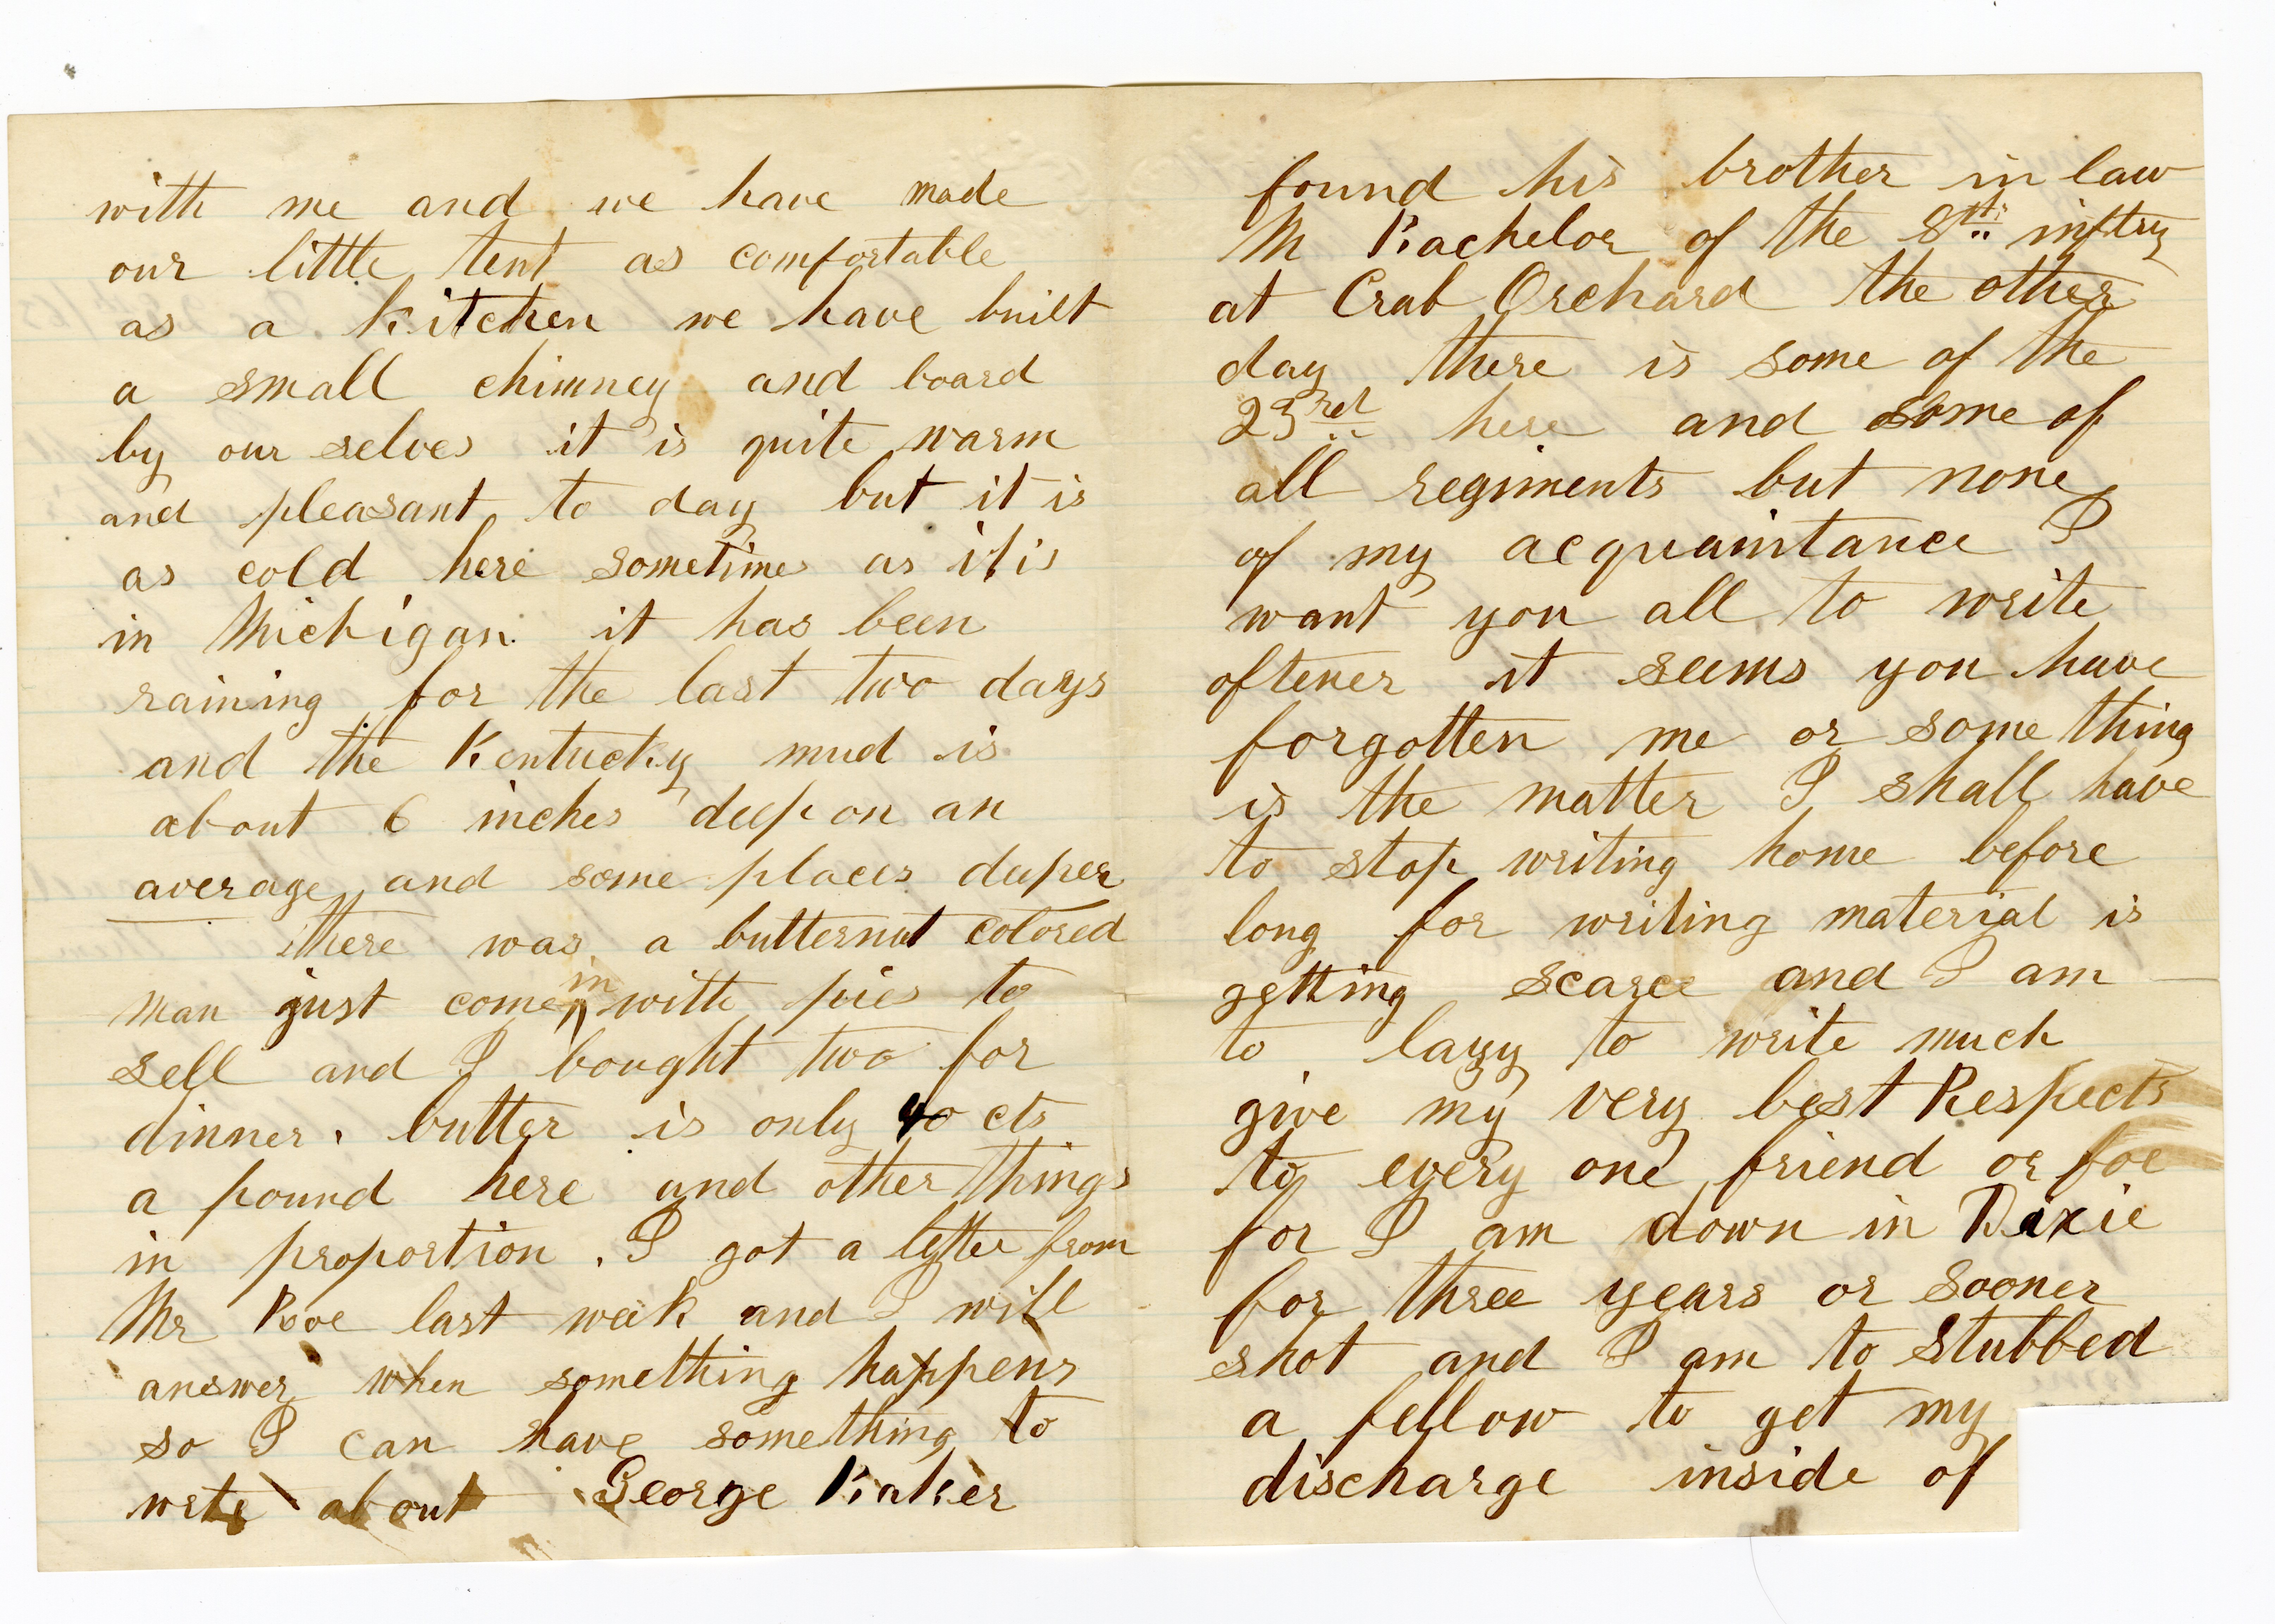 with me and we have made
our little tent as comfortable
as a Kitchen we have built
a small chimney and board
by our selves it is quite warm
and pleasant to day but it is
as cold here sometimes as it is
in Michigan. it has been
raining for the last two days
and the Kentucky mud is
about 6 inches deep on an
average and some places deeper
there was a butternut colored
man just come in with pies to
sell and I bought two for
dinner. butter is only 40 cts
a pound here and other things
in proportion. I got a letter from
Mr last week and I will
answer when something happens
so I can have something to
write about George Baker
found his brother in law
M Bachelor of the 8th inftry
at Crab Orchard the other
day there is some of the
23rd here and some of
all regiments but none
of my acquaintance I
want you all to write
oftener it seems you have
forgotten me or some thing
is the matter I shall have
to stop writing home before
long for writing material is
getting scarce and I am
to lazy to write much
give my very best Respects
to every one friend or foe
for I am down in Dixie
for three years or sooner
shot and I am to stubbed
a fellow to get my
discharge inside of